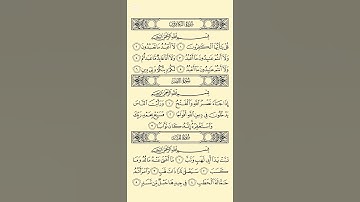 سورة الكافرون
بسم الله الرحمن الرحيم
قُلْ يَا أَيُّهَا الْكَافِرُونَ ١ لَا أَعْبُدُ مَا تَعْبُدُونَ ٢
وَلَا أَنتُمْ عَابِدُونَ مَا أَعْبُدُ ٣ وَلَا أَنَا عَابِدٌ مَّا عَبَدتُّمْ ٤
وَلَا أَنتُمْ عَابِدُونَ مَا أَعْبُدُ ٥ لَكُمْ دِينُكُمْ وَلِيَ دِينِ ٦
سورة النصر
بسم الله الرحمن الرحيم
إِذَا جَاءَ نَصْرُ اللَّهِ وَالْفَتْحُ ١ وَرَأَيْتَ النَّاسَ
يَدْخُلُونَ فِي دِينِ اللَّهِ أَفْوَاجًا ٢ فَسَبِّحْ بِحَمْدِ رَبِّكَ
وَاسْتَغْفِرْهُ إِنَّهُ كَانَ تَوَّابًا ٣
سورة المسد
بسم الله الرحمن الرحيم
تَبَّتْ يَدَا أَبِي لَهَبٍ وَتَبَّ ١ مَا أَغْنَىٰ عَنْهُ مَالُهُ وَمَا
كَسَبَ ٢ سَيَصْلَىٰ نَارًا ذَاتَ لَهَبٍ ٣ وَامْرَأَتُهُ
حَمَّالَةَ الْحَطَبِ ٤ فِي جِيدِهَا حَبْلٌ مِّن مَّسَدٍ ٥